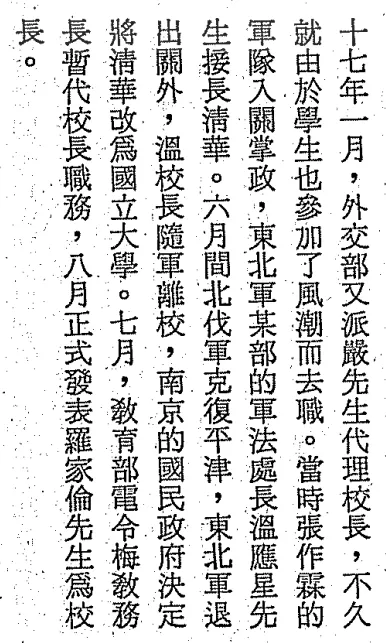 十七年一月，外交部又派嚴先生代理校長，不久
就由於學生也參加了風潮而去職。當時張作霖的
軍隊入關掌政，東北軍某部的軍法處長溫應星先
生接長清華。六月間北伐軍克復平津，東北軍退
出關外，溫校長隨軍離校，南京的國民政府決定
將清華改爲國立大學。七月，教育部電令梅教務
長暫代校長職務，八月正式發表羅家倫先生爲校
長。